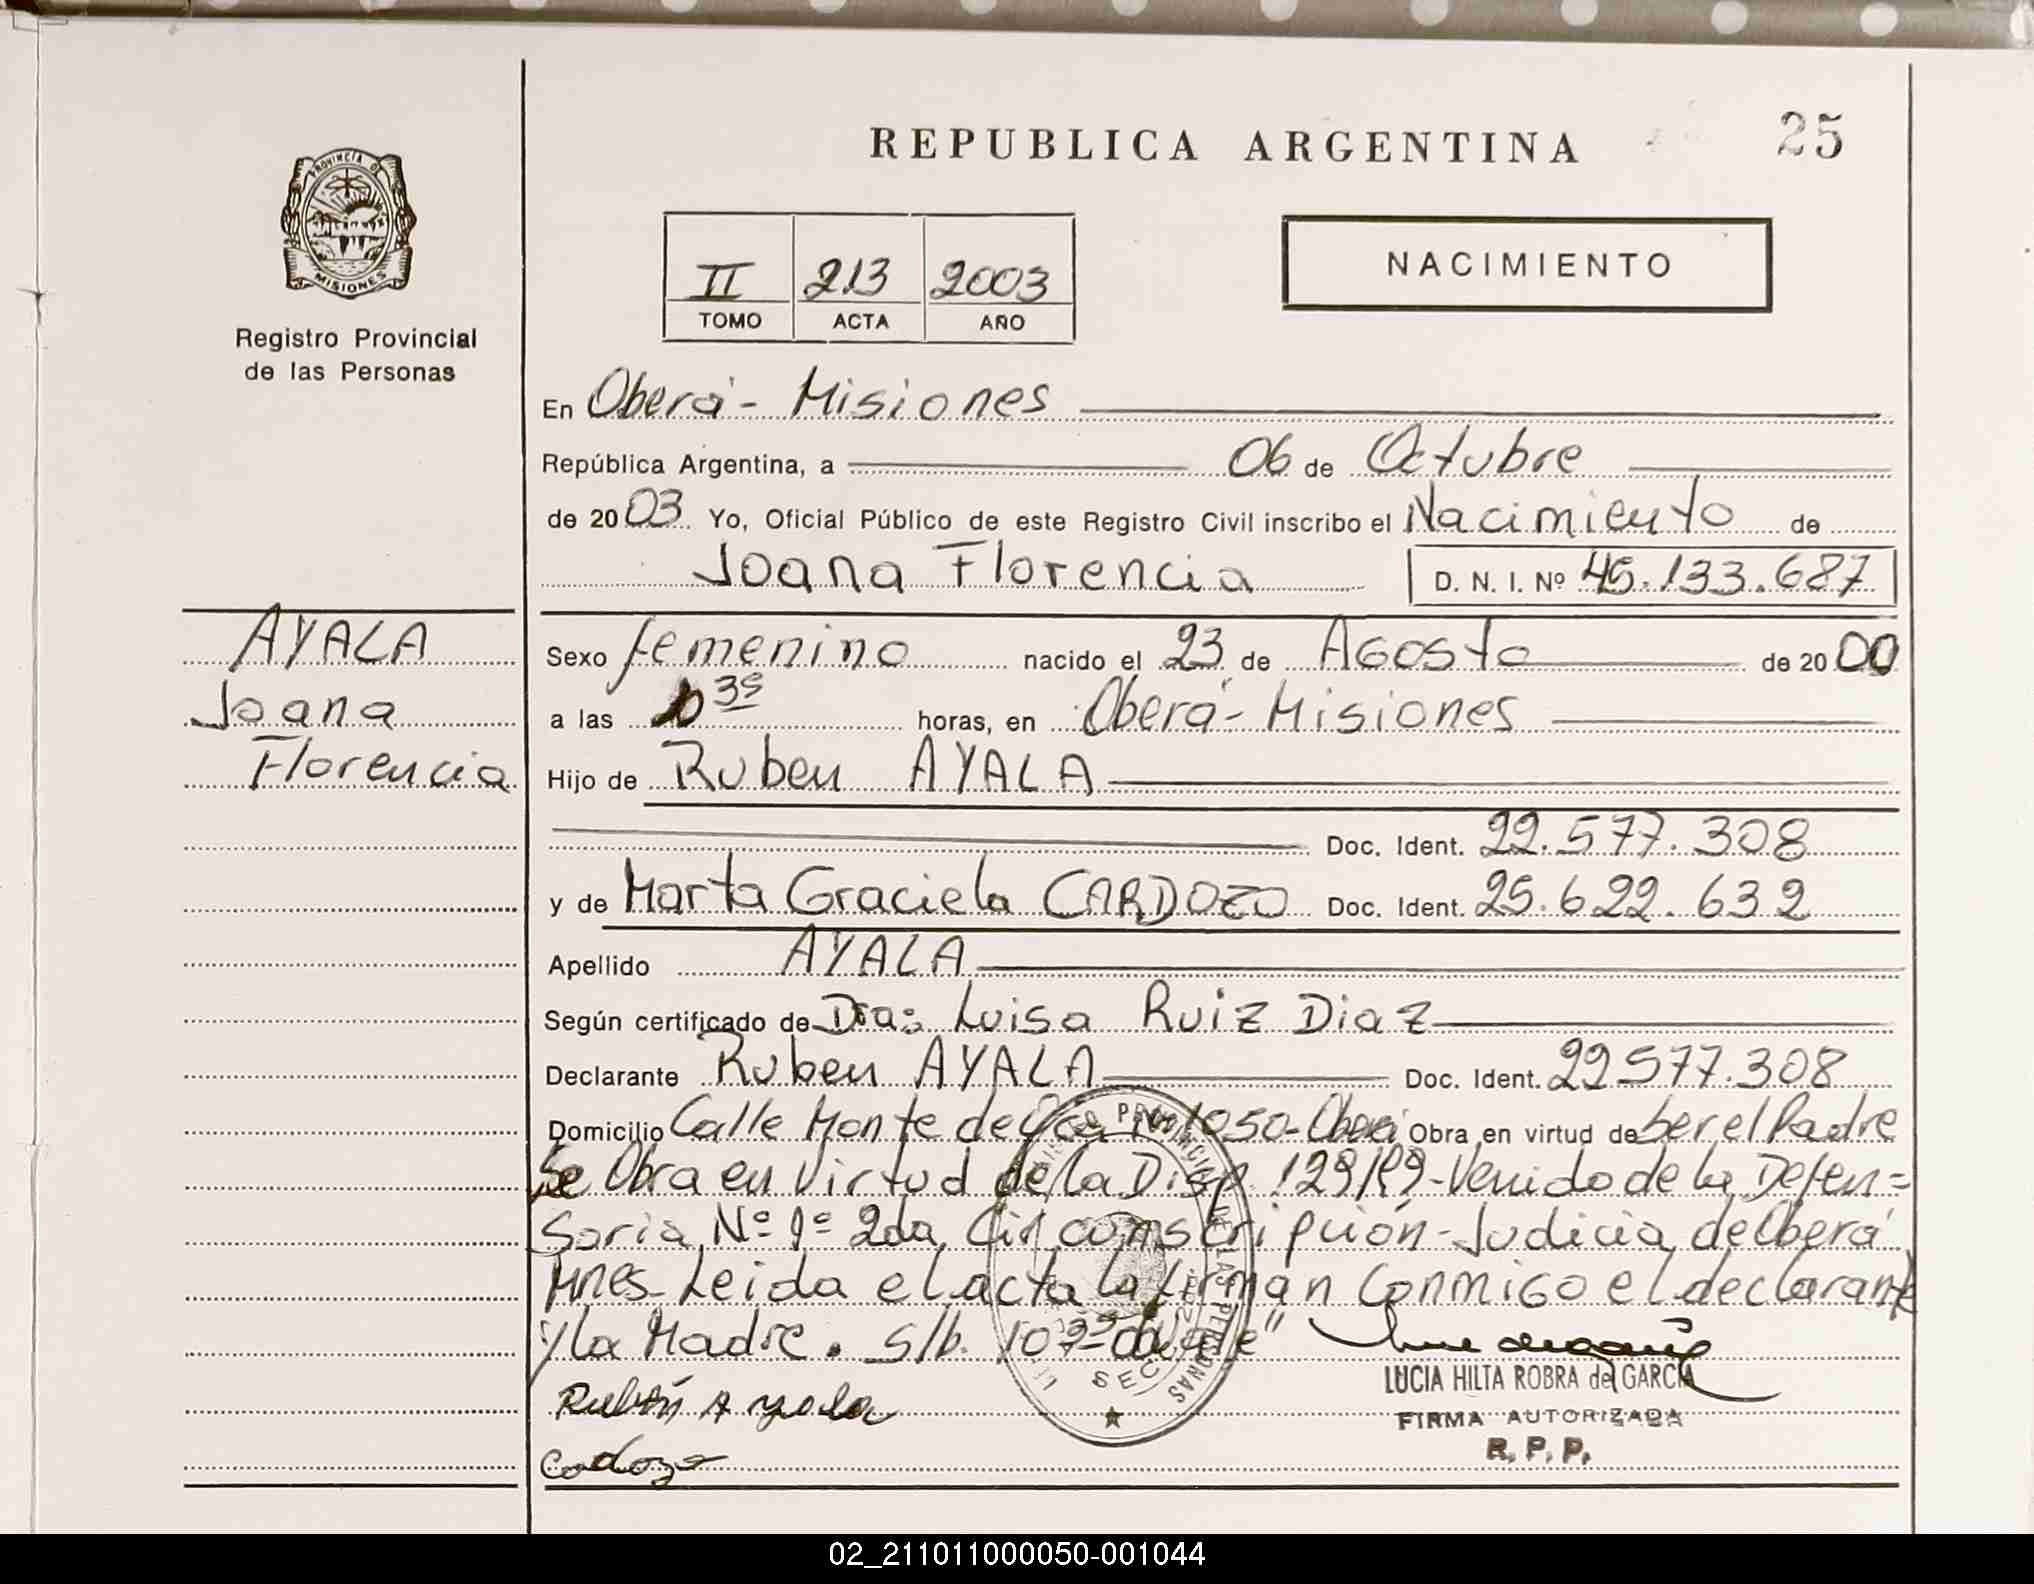 REPUBLICA ARGENTINA
25
PROVINCIA DE
MISIONES
Registro Provincial
de las Personas
II 213 2003
TOMO ACTA AÑO
NACIMIENTO
En Oberá - Misiones
República Argentina, a 06 de Octubre
de 20 03 Yo, Oficial Público de este Registro Civil inscribo el Nacimiento de
Joana Florencia D. N. I. Nº 45.133.687
AYALA
Joana
Florencia
Sexo femenino nacido el 23 de Agosto de 20 00
a las 10 35 horas, en Oberá - Misiones
Hijo de Ruben AYALA
Doc. Ident. 22.577.308
y de Marta Graciela CARDOZO Doc. Ident. 25.622.632
Apellido AYALA
Según certificado de Dra: Luisa Ruiz Diaz
Declarante Ruben AYALA Doc. Ident. 22577.308
Domicilio Calle Monte de 1050 - Oberá Obra en virtud de ser el Padre
Se Obra en Virtud de la Disp. 129/99 - Venido de la Defen=
soria Nº 1º 2da Circomscripción - Judicia de Oberá
Mnes - Leida el acta la firman conmigo el declarante
y la Madre. s/b. 10
LUCIA HILTA ROBRA de GARCIA
Rubén Ayala
FIRMA AUTORIZADA
R. P. P.
Cardozo
02_211011000050-001044